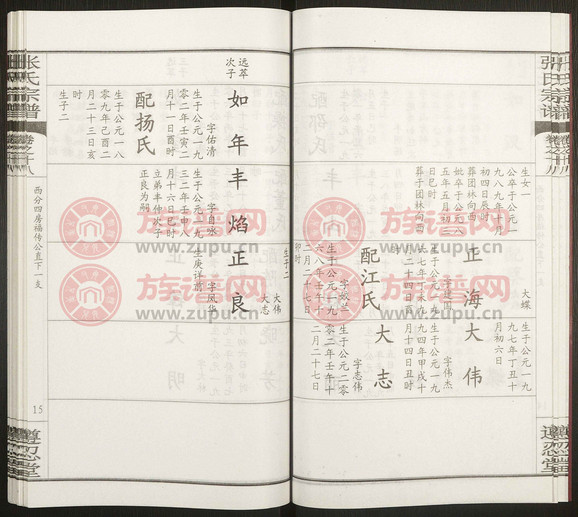 张氏宗谱
卷之十八
遵忍堂
生女一
公卒于公元一
九八九年十月
初四日辰时
葬团林向西
妣卒于公元八
五年五月初三
日巳时
葬于团林向西
正海
大蝶
大伟
字伟杰
生于公元一九
九四年甲戌十
月十四日丑时
生于公元一九
九七年丁丑十
月初六日
配江氏
生于公元一九
六八年
二月二十七日
卯时
生子二
大伟
大志
大志
字志伟
生于公元二零
零二年壬午十
二月二十七日
张氏宗谱
远萃
次子
如年
字佑清
生于公元一九
零二年壬寅二
月十一日酉时
配扬氏
生于公元一八
零九年己酉二
月二十三日亥
时
生子二
丰焰
字自咏
生于公元一九
三二年壬申八
月十六日巳时
立弟丰仲次子
正良为嗣
正良
字凤华
生庚详前
西分四房福传公直下一支
15
遵忍堂
族谱网
www.zupu.cn
族谱网
www.zupu.cn
族谱网
www.zupu.cn
族谱网
www.zupu.cn